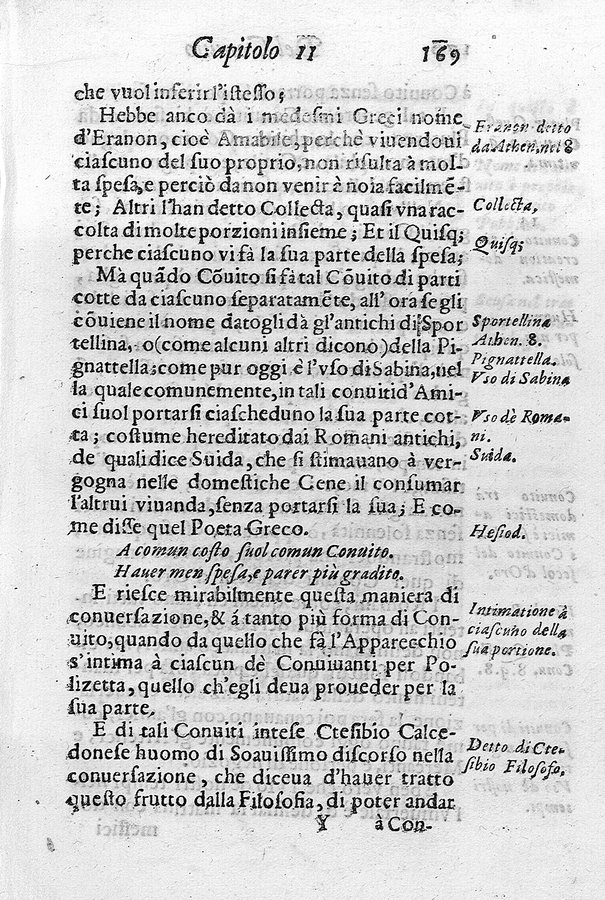 Capitolo 11 169
che vuol inferir l'istesso;
Hebbe anco dà i medesmi Greci nome
d'Eranon, cioè Amabile, perchè viuendoui
ciascuno del suo proprio, non risulta à mol-
ta spesa, e perciò da non venir à noia facilmē-
te; Altri l'han detto Collecta, quasi vna rac-
colta di molte porzioni insieme; Et il Quisq;
perche ciascuno vi fà la sua parte della spesa;
Mà quādo Cōuito si fà tal Cōuito di parti
cotte da ciascuno separatamēte, all'ora se gli
cōuiene il nome datogli dà gl'antichi di Spor
tellina, o (come alcuni altri dicono) della Pi-
gnattella; come pur oggi è l'vso di Sabina, nel
la quale comunemente, in tali conuiti d'Ami-
ci suol portarsi ciascheduno la sua parte cot-
ta; costume hereditato dai Romani antichi,
de quali dice Suida, che si stimauano à ver-
gogna nelle domestiche Cene il consumar
l'altrui viuanda, senza portarsi la sua; E co-
me disse quel Poeta Greco.
A comun costo suol comun Conuito.
Hauer men spesa, e parer più gradito.
E riesce mirabilmente questa maniera di
conuersazione, & á tanto più forma di Con-
uito, quando da quello che fà l'Apparecchio
s'intima à ciascun dè Conuiuanti per Po-
lizetta, quello ch'egli deua proueder per la
sua parte.
E di tali Conuiti intese Ctesibio Calce-
donese huomo di Soauissimo discorso nella
conuersazione, che diceua d'hauer tratto
questo frutto dalla Filosofia, di poter andar
Y à Con-
Eranon detto
da Athen. nel 8
Collecta,
Quisq;
Sportellina
Athen. 8.
Pignattella.
Vso di Sabina
Vso dè Roma-
ni.
Suida.
Hesiod.
Intimatione à
ciascuno della
sua portione.
Detto di Cte-
sibio Filosofo,